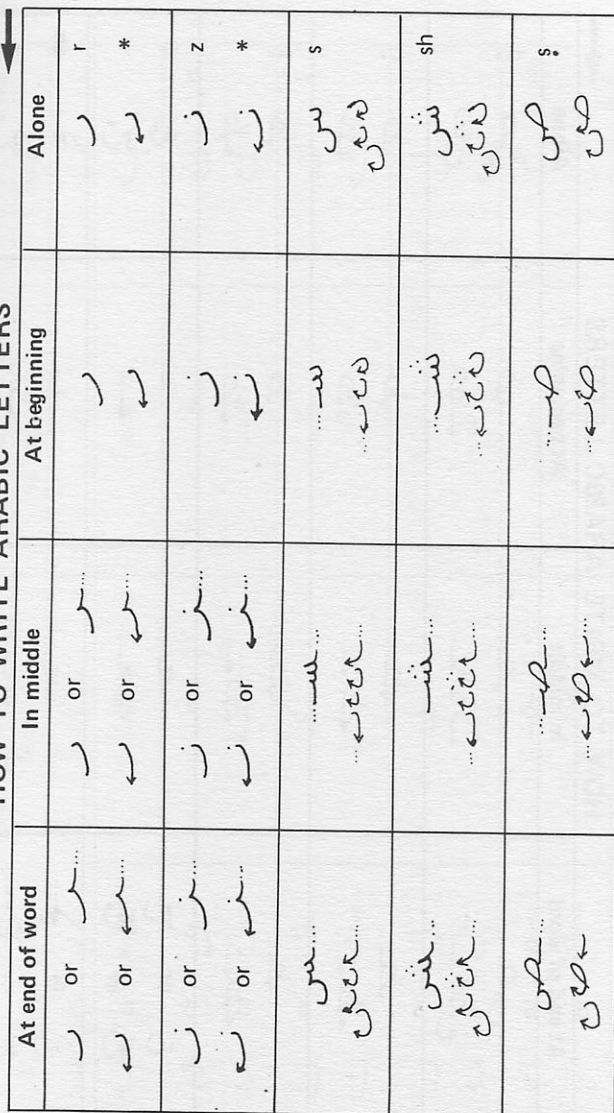 HOW TO WRITE ARABIC LETTERS
At end of word In middle At beginning Alone
ر or ـر... ر or ـر... ر ر r
or or *
ز or ـز... ز or ـز... ز ز z
or or *
ـس... ...ـسـ... ...سـ س s
ـش... ـشـ... ...شـ ش sh
ـص... ...ـصـ... ...صـ ص ṣ